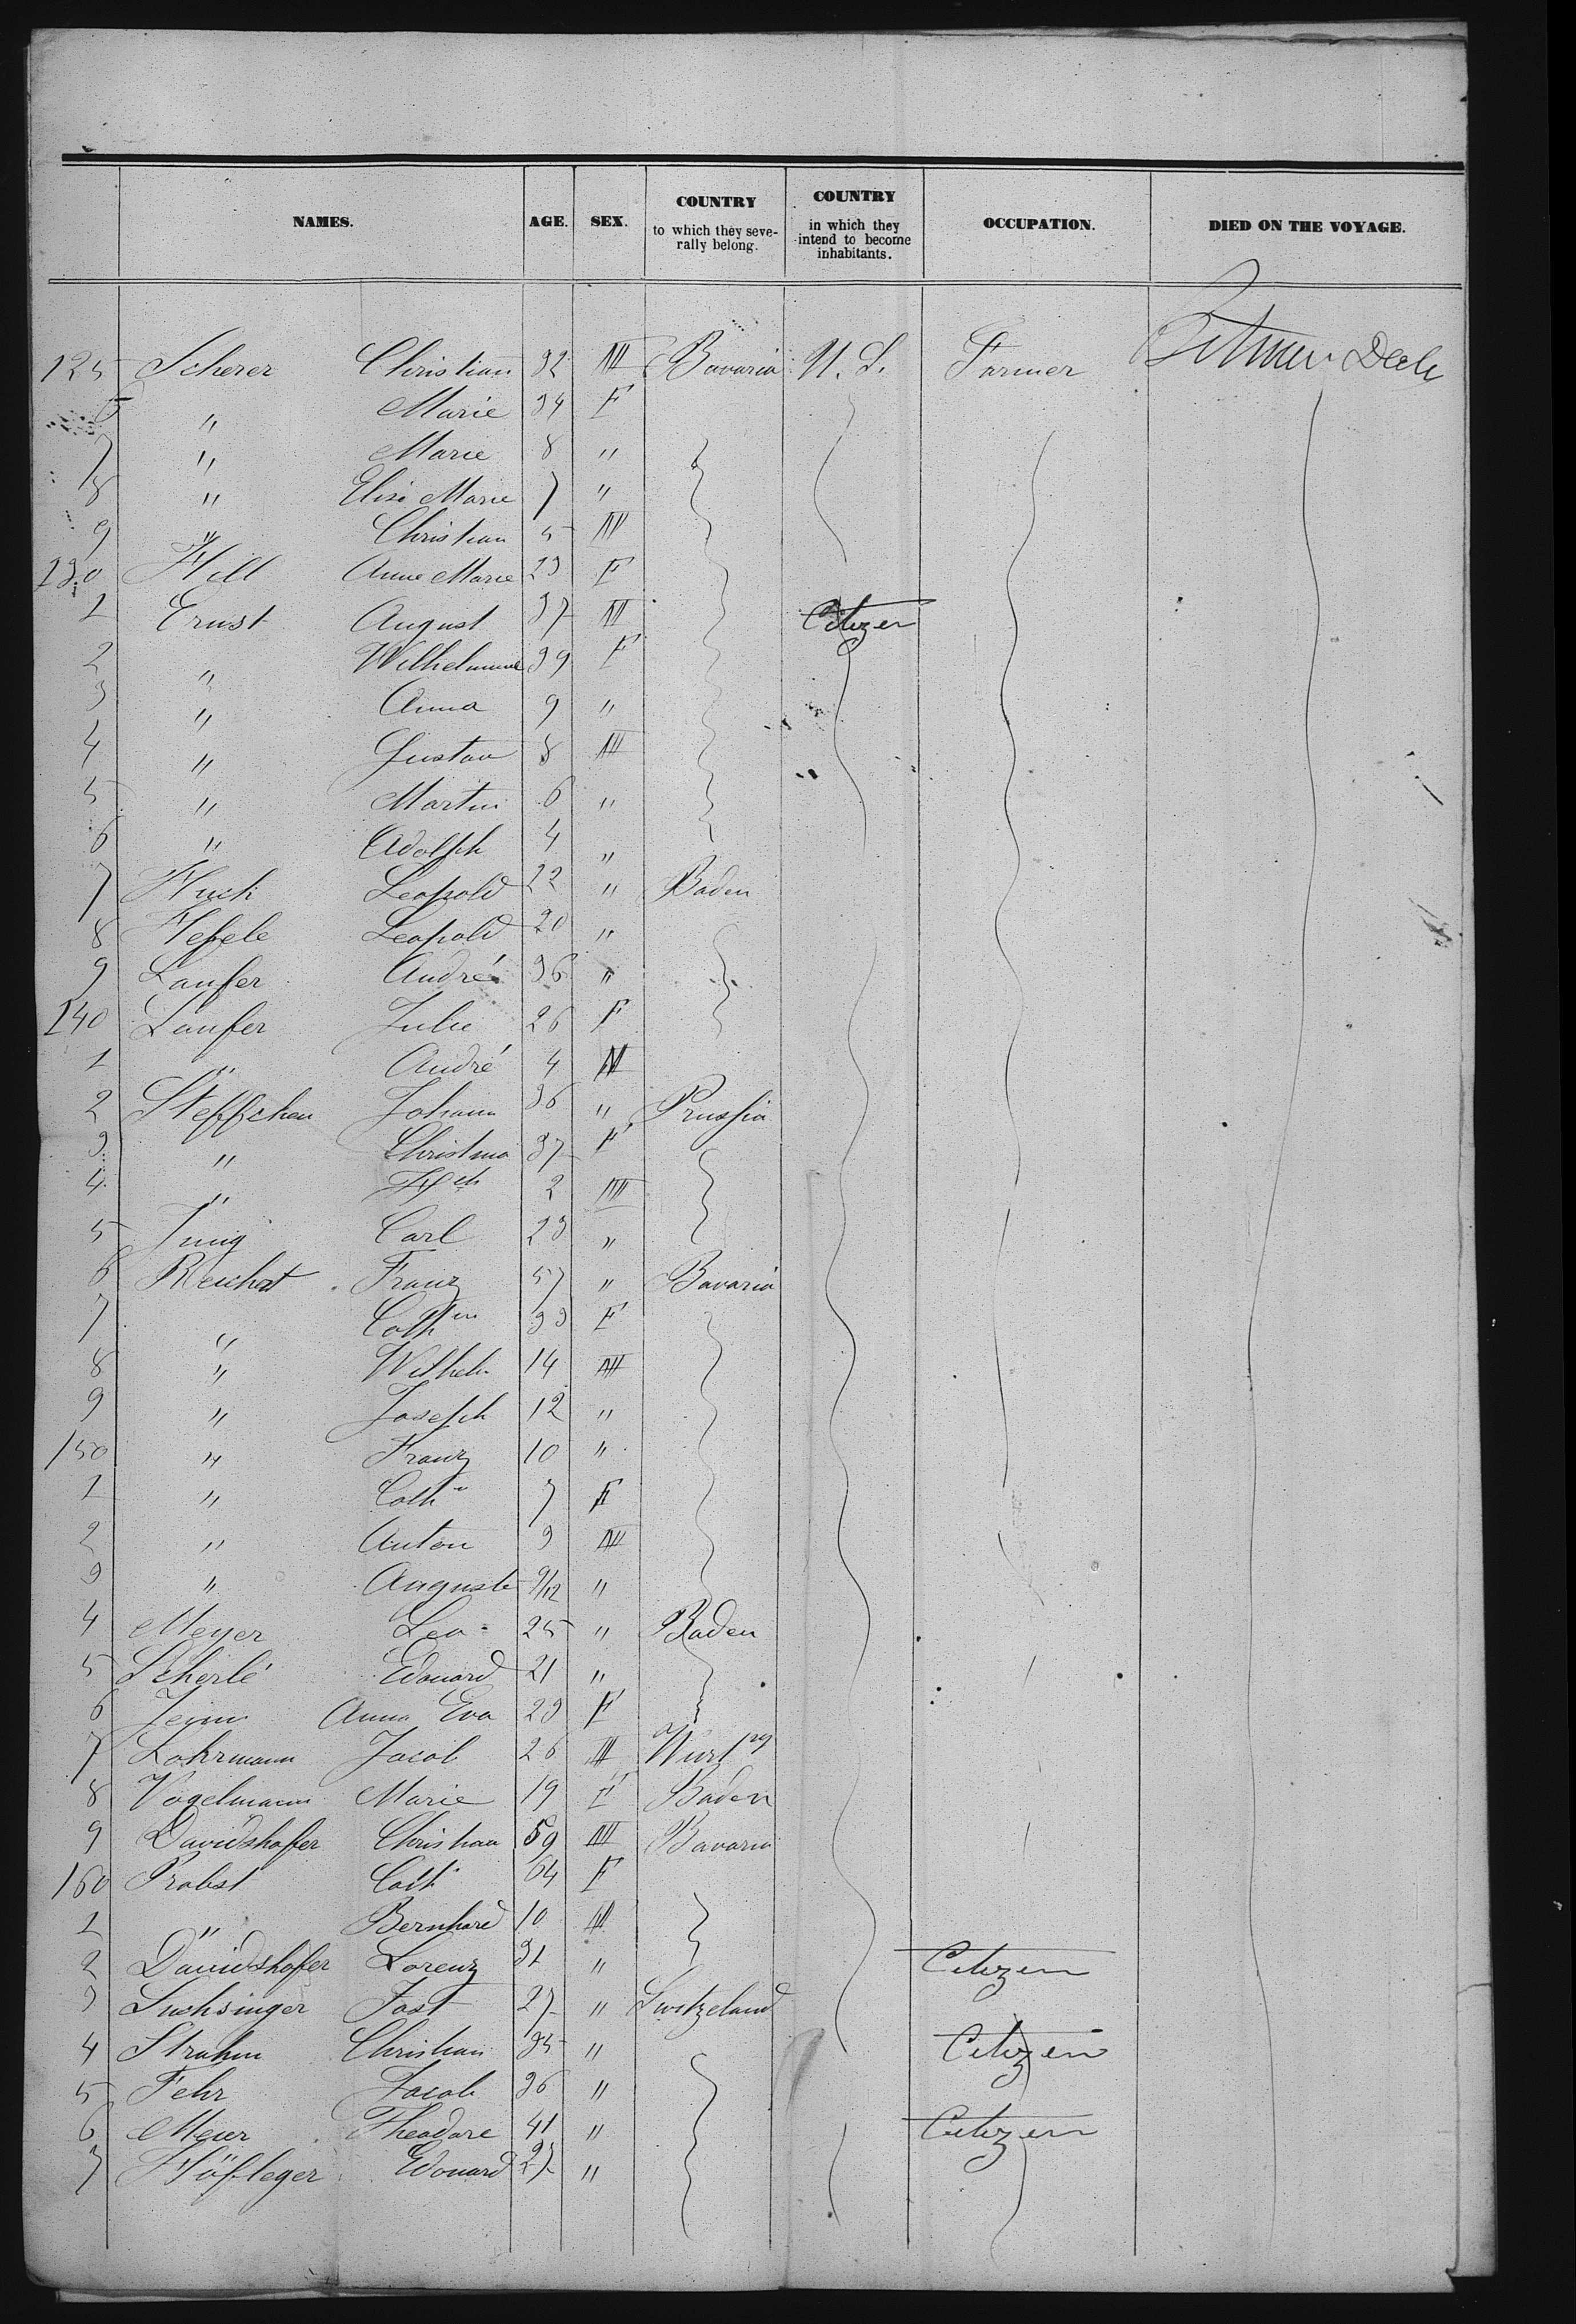 NAMES. AGE. SEX. COUNTRY to which they severally belong. COUNTRY in which they intend to become inhabitants. OCCUPATION. DIED ON THE VOYAGE.
125 Scherer Christian 32 M Bavaria U. S. Farmer Between Deck
6 " Marie 34 F
7 " Marie 8 "
8 " Elise Marie 7 "
9 " Christian 5 M
130 Hell Anne Marie 23 F
1 Ernst August 37 M Citizen
2 " Wilhelmine 39 F
3 " Anna 9 "
4 " Gustav 8 M
5 " Martin 6 "
6 " Adolph 4 "
7 Huck Leopold 22 " Baden
8 Hefele Leopold 20 "
9 Laufer André 36 "
140 Laufer Julie 26 F
1 " André 4 M
2 Steffchen Johann 36 " Prussia
3 " Christina 37 F
4 " 2 M
5 Jung Carl 23 "
6 Reichert Franz 57 " Bavaria
7 " Cath 33 F
8 " Wilhelm 14 M
9 " Joseph 12 "
150 " Franz 10 "
1 " Cath 7 F
2 " Anton 3 M
3 " Auguste 9/12 "
4 Meyer Leo 25 " Baden
5 Scherlé Edouard 21 "
6 Anna Eva 23 F
7 Lohrmann Jacob 26 M Wurtbg
8 Vogelmann Marie 19 F Baden
9 Davidshofer Christian 59 M Bavaria
160 Probst Cath 64 F
1 " Bernhard 10 M
2 Davidshofer Lorenz 31 " Citizen
3 Luchsinger Jost 27 " Switzeland
4 Strahm Christian 35 " Citizen
5 Fehr Jacob 36 "
6 Meier Theodore 41 " Citizen
7 Höfleger Edouard 27 "